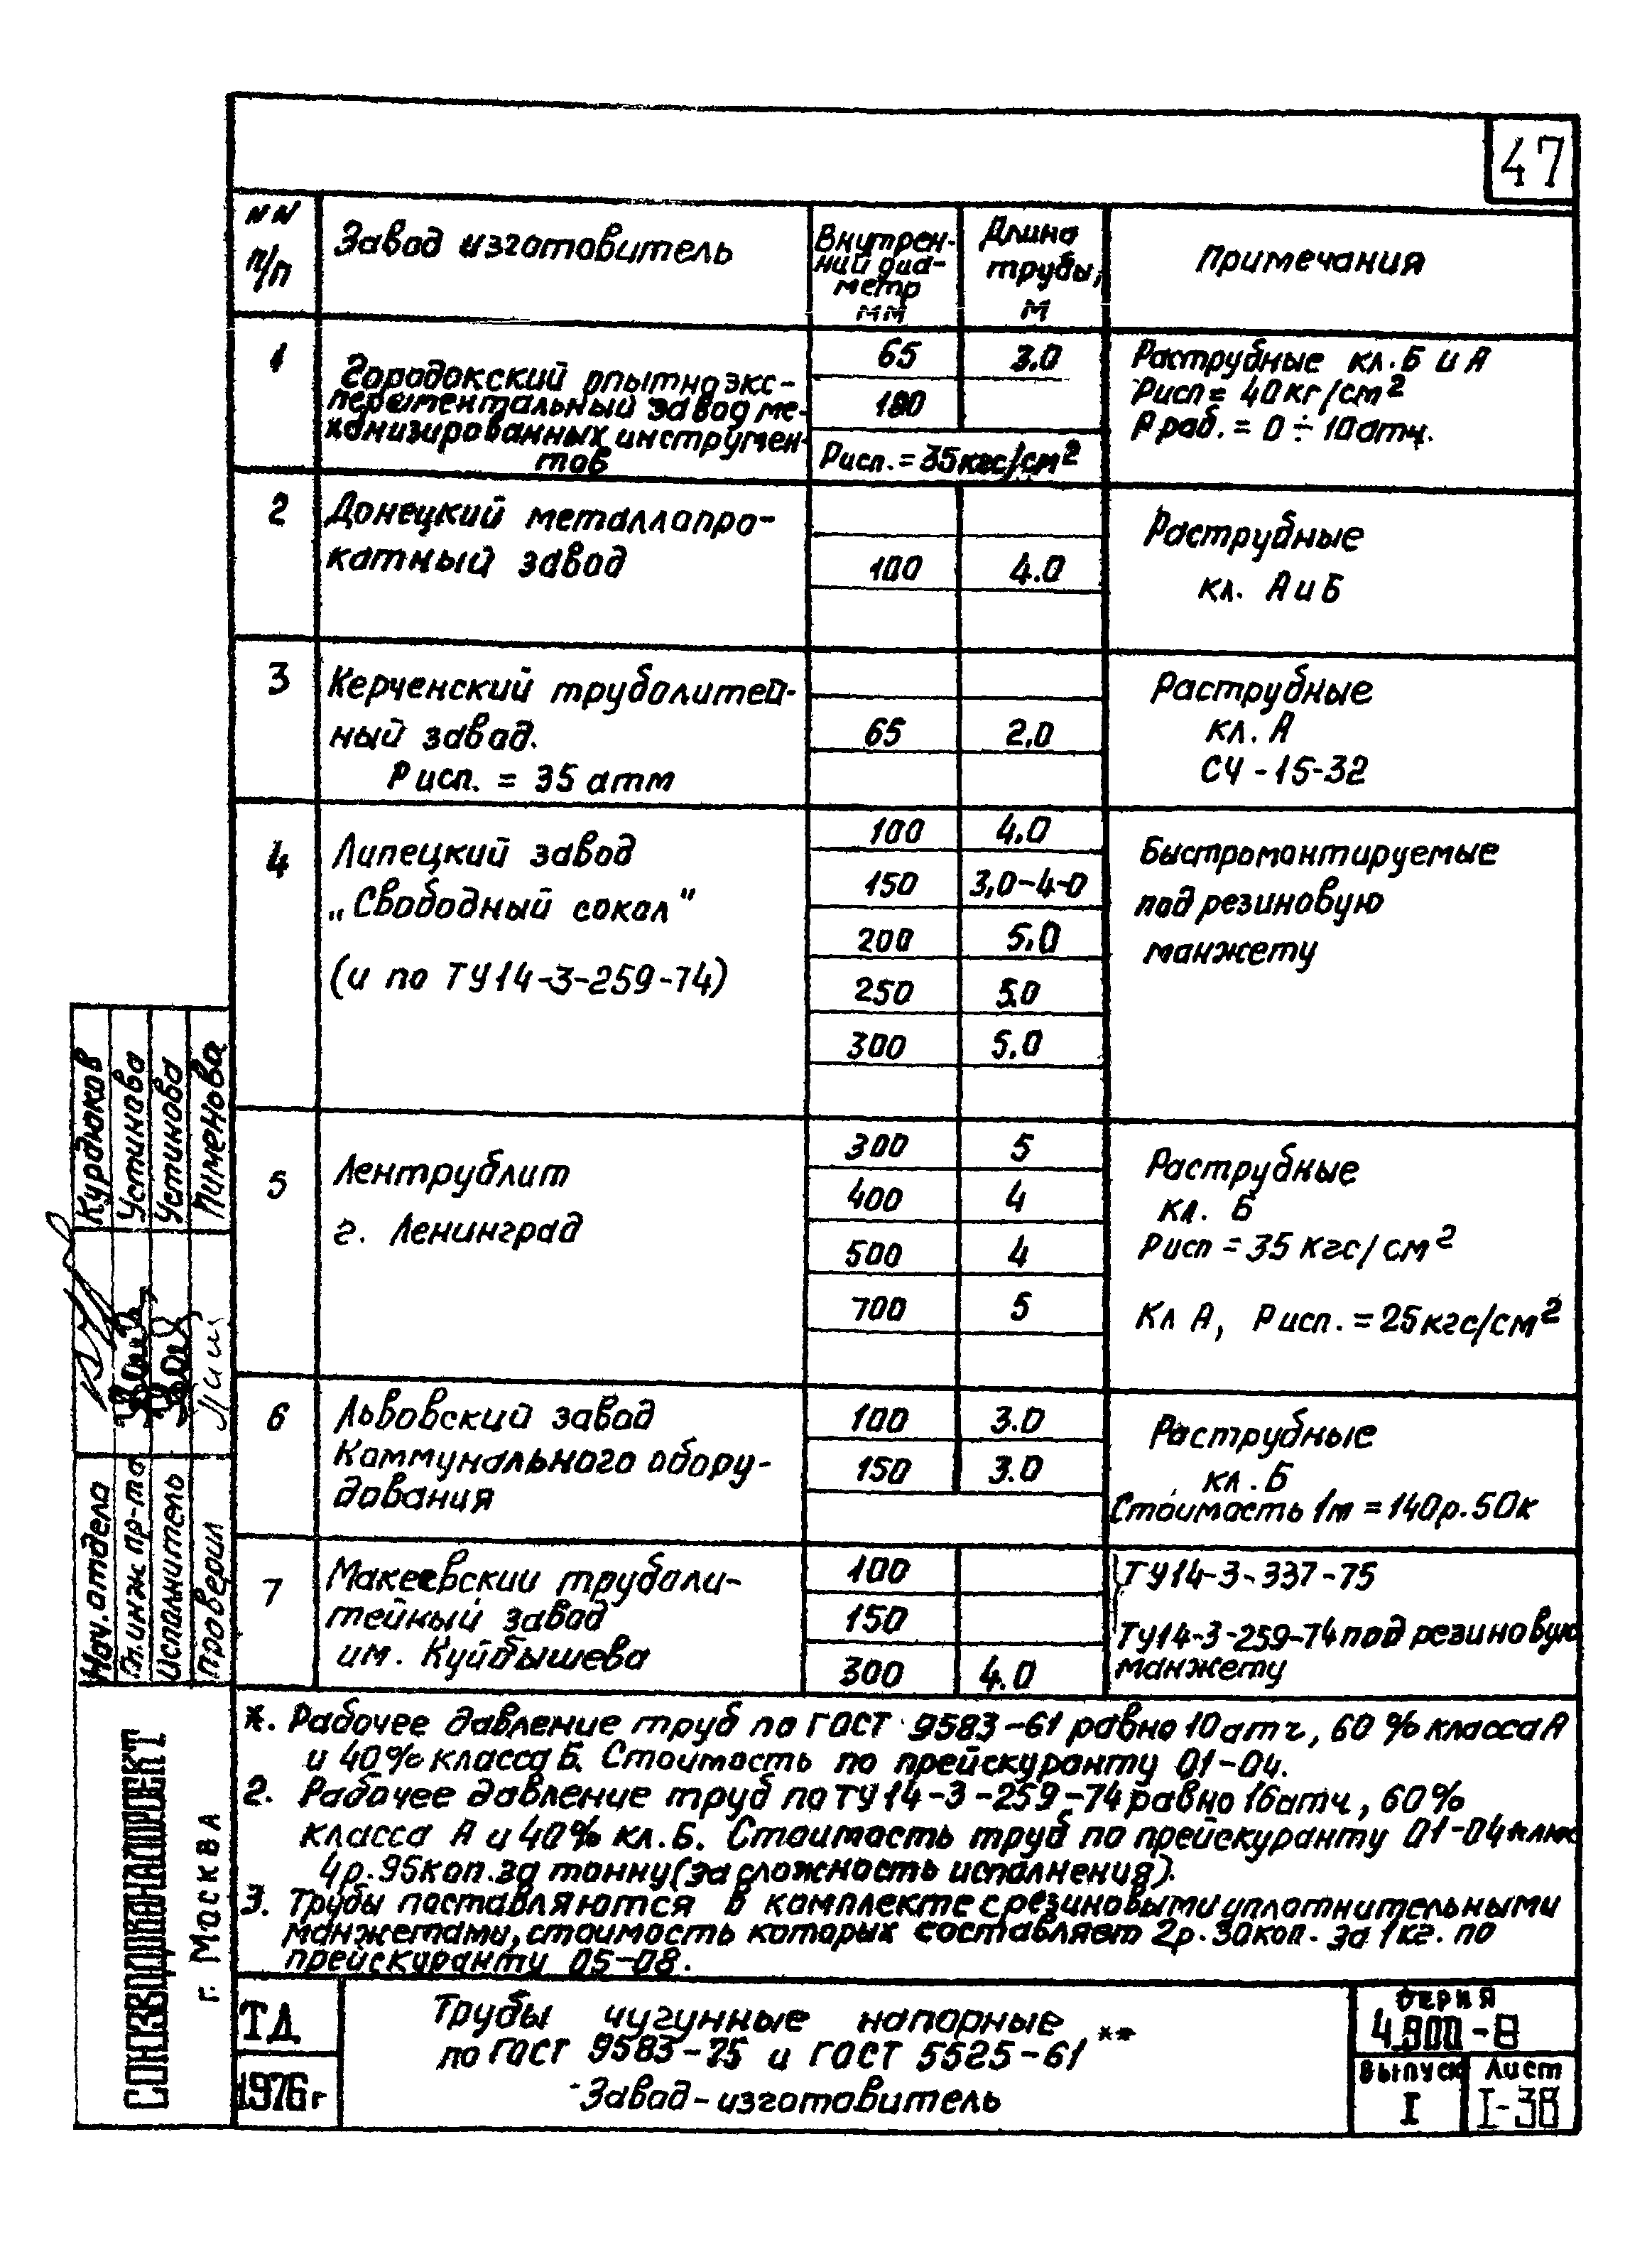 47
NN п/п
Завод изготовитель
Внутрен-
ний диа-
метр
мм
Длина
трубы,
м
Примечания
1
Городокский опытноэкс-
периментальный завод ме-
ханизированных инструмен-
тов
65 3.0
100
Рисп. = 35 кгс/см²
Раструбные кл. Б и А
Рисп = 40 кг/см²
Р раб. = 0 ÷ 10 атм.
2
Донецкий металлопро-
катный завод
100 4.0
Раструбные
кл. А и Б
3
Керченский труболитей-
ный завод.
Р исп. = 35 атм
65 2.0
Раструбные
кл. А
СЧ-15-32
4
Липецкий завод
„Свободный сокол"
(и по ТУ14-3-259-74)
100 4.0
150 3,0-4-0
200 5.0
250 5.0
300 5.0
Быстромонтируемые
под резиновую
манжету
5
Лентрублит
г. Ленинград
300 5
400 4
500 4
700 5
Раструбные
кл. Б
Рисп = 35 кгс/см²
Кл А, Р исп. = 25 кгс/см²
6
Львовский завод
Коммунального обору-
дования
100 3.0
150 3.0
Раструбные
кл. Б
Стоимость 1т = 140р. 50к
7
Макеевский труболи-
тейный завод
им. Куйбышева
100
150
300 4.0
ТУ14-3-337-75
ТУ14-3-259-74 под резиновую
манжету
*. Рабочее давление труб по ГОСТ 9583-61 равно 10 ати, 60 % класса А
и 40% класса Б. Стоимость по прейскуранту 01-04.
2. Рабочее давление труб по ТУ14-3-259-74 равно 16 ати, 60%
класса А и 40% кл. Б. Стоимость труб по прейскуранту 01-04 плюс
4р. 95коп. за тонну (за сложность исполнения).
3. Трубы поставляются в комплекте с резиновыми уплотнительными
манжетами, стоимость которых составляет 2р. 30коп. за 1кг. по
прейскуранту 05-08.
ТД
1976г
Трубы чугунные напорные
по ГОСТ 9583-75 и ГОСТ 5525-61 **
Завод-изготовитель
серия
4.900-8
Выпуск
I
Лист
I-38
Нач. отдела Курдюков
Гл. инж пр-та Устинова
Исполнитель Устинова
Проверил Пименова
СОЮЗВОДОКАНАЛПРОЕКТ
г. Москва